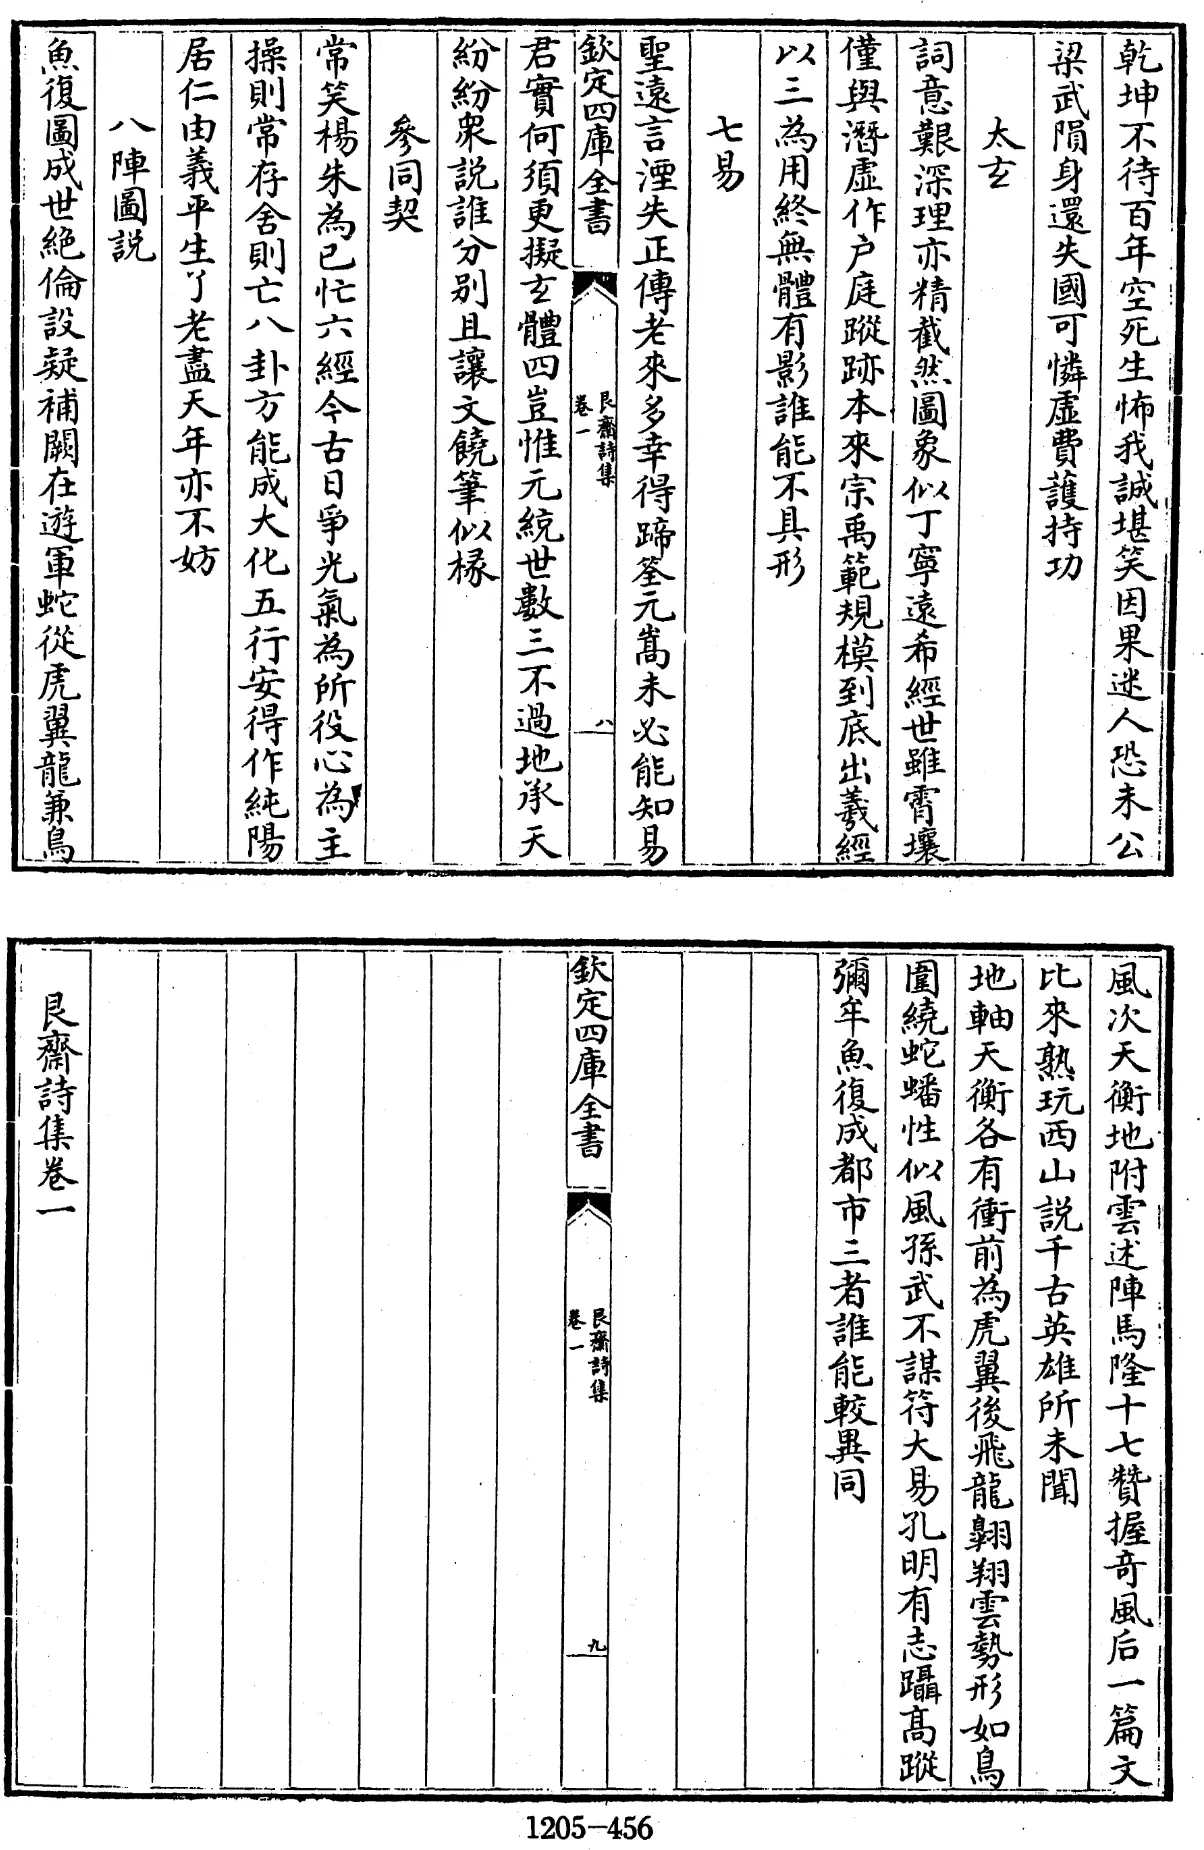 乾坤不待百年空死生怖我誠堪笑因果迷人恐未公
梁武隕身還失國可憐虛費護持功
太玄
詞意艱深理亦精截然圖象似丁寧遠希經世雖霄壤
僅與潛虛作户庭蹤跡本來宗禹範規模到底出羲經
以三為用終無體有影誰能不具形
七易
聖遠言湮失正傳老來多幸得蹄筌元嵩未必能知易
欽定四庫全書
艮齋詩集
卷一
八
君實何須更擬玄體四豈惟元統世數三不過地承天
紛紛衆說誰分別且讓文饒筆似椽
參同契
常笑楊朱為已忙六經今古日爭光氣為所役心為主
操則常存舍則亡八卦方能成大化五行安得作純陽
居仁由義平生了老盡天年亦不妨
八陣圖説
魚復圖成世絶倫設疑補闕在遊軍蛇從虎翼龍兼鳥
風次天衡地附雲述陣馬隆十七贊握奇風后一篇文
比來熟玩西山説千古英雄所未聞
地軸天衡各有衝前為虎翼後飛龍翺翔雲勢形如鳥
圍繞蛇蟠性似風孫武不謀符大易孔明有志躡高蹤
彌牟魚復成都市三者誰能較異同
欽定四庫全書
艮齋詩集
卷一
九
艮齋詩集卷一
1205-456